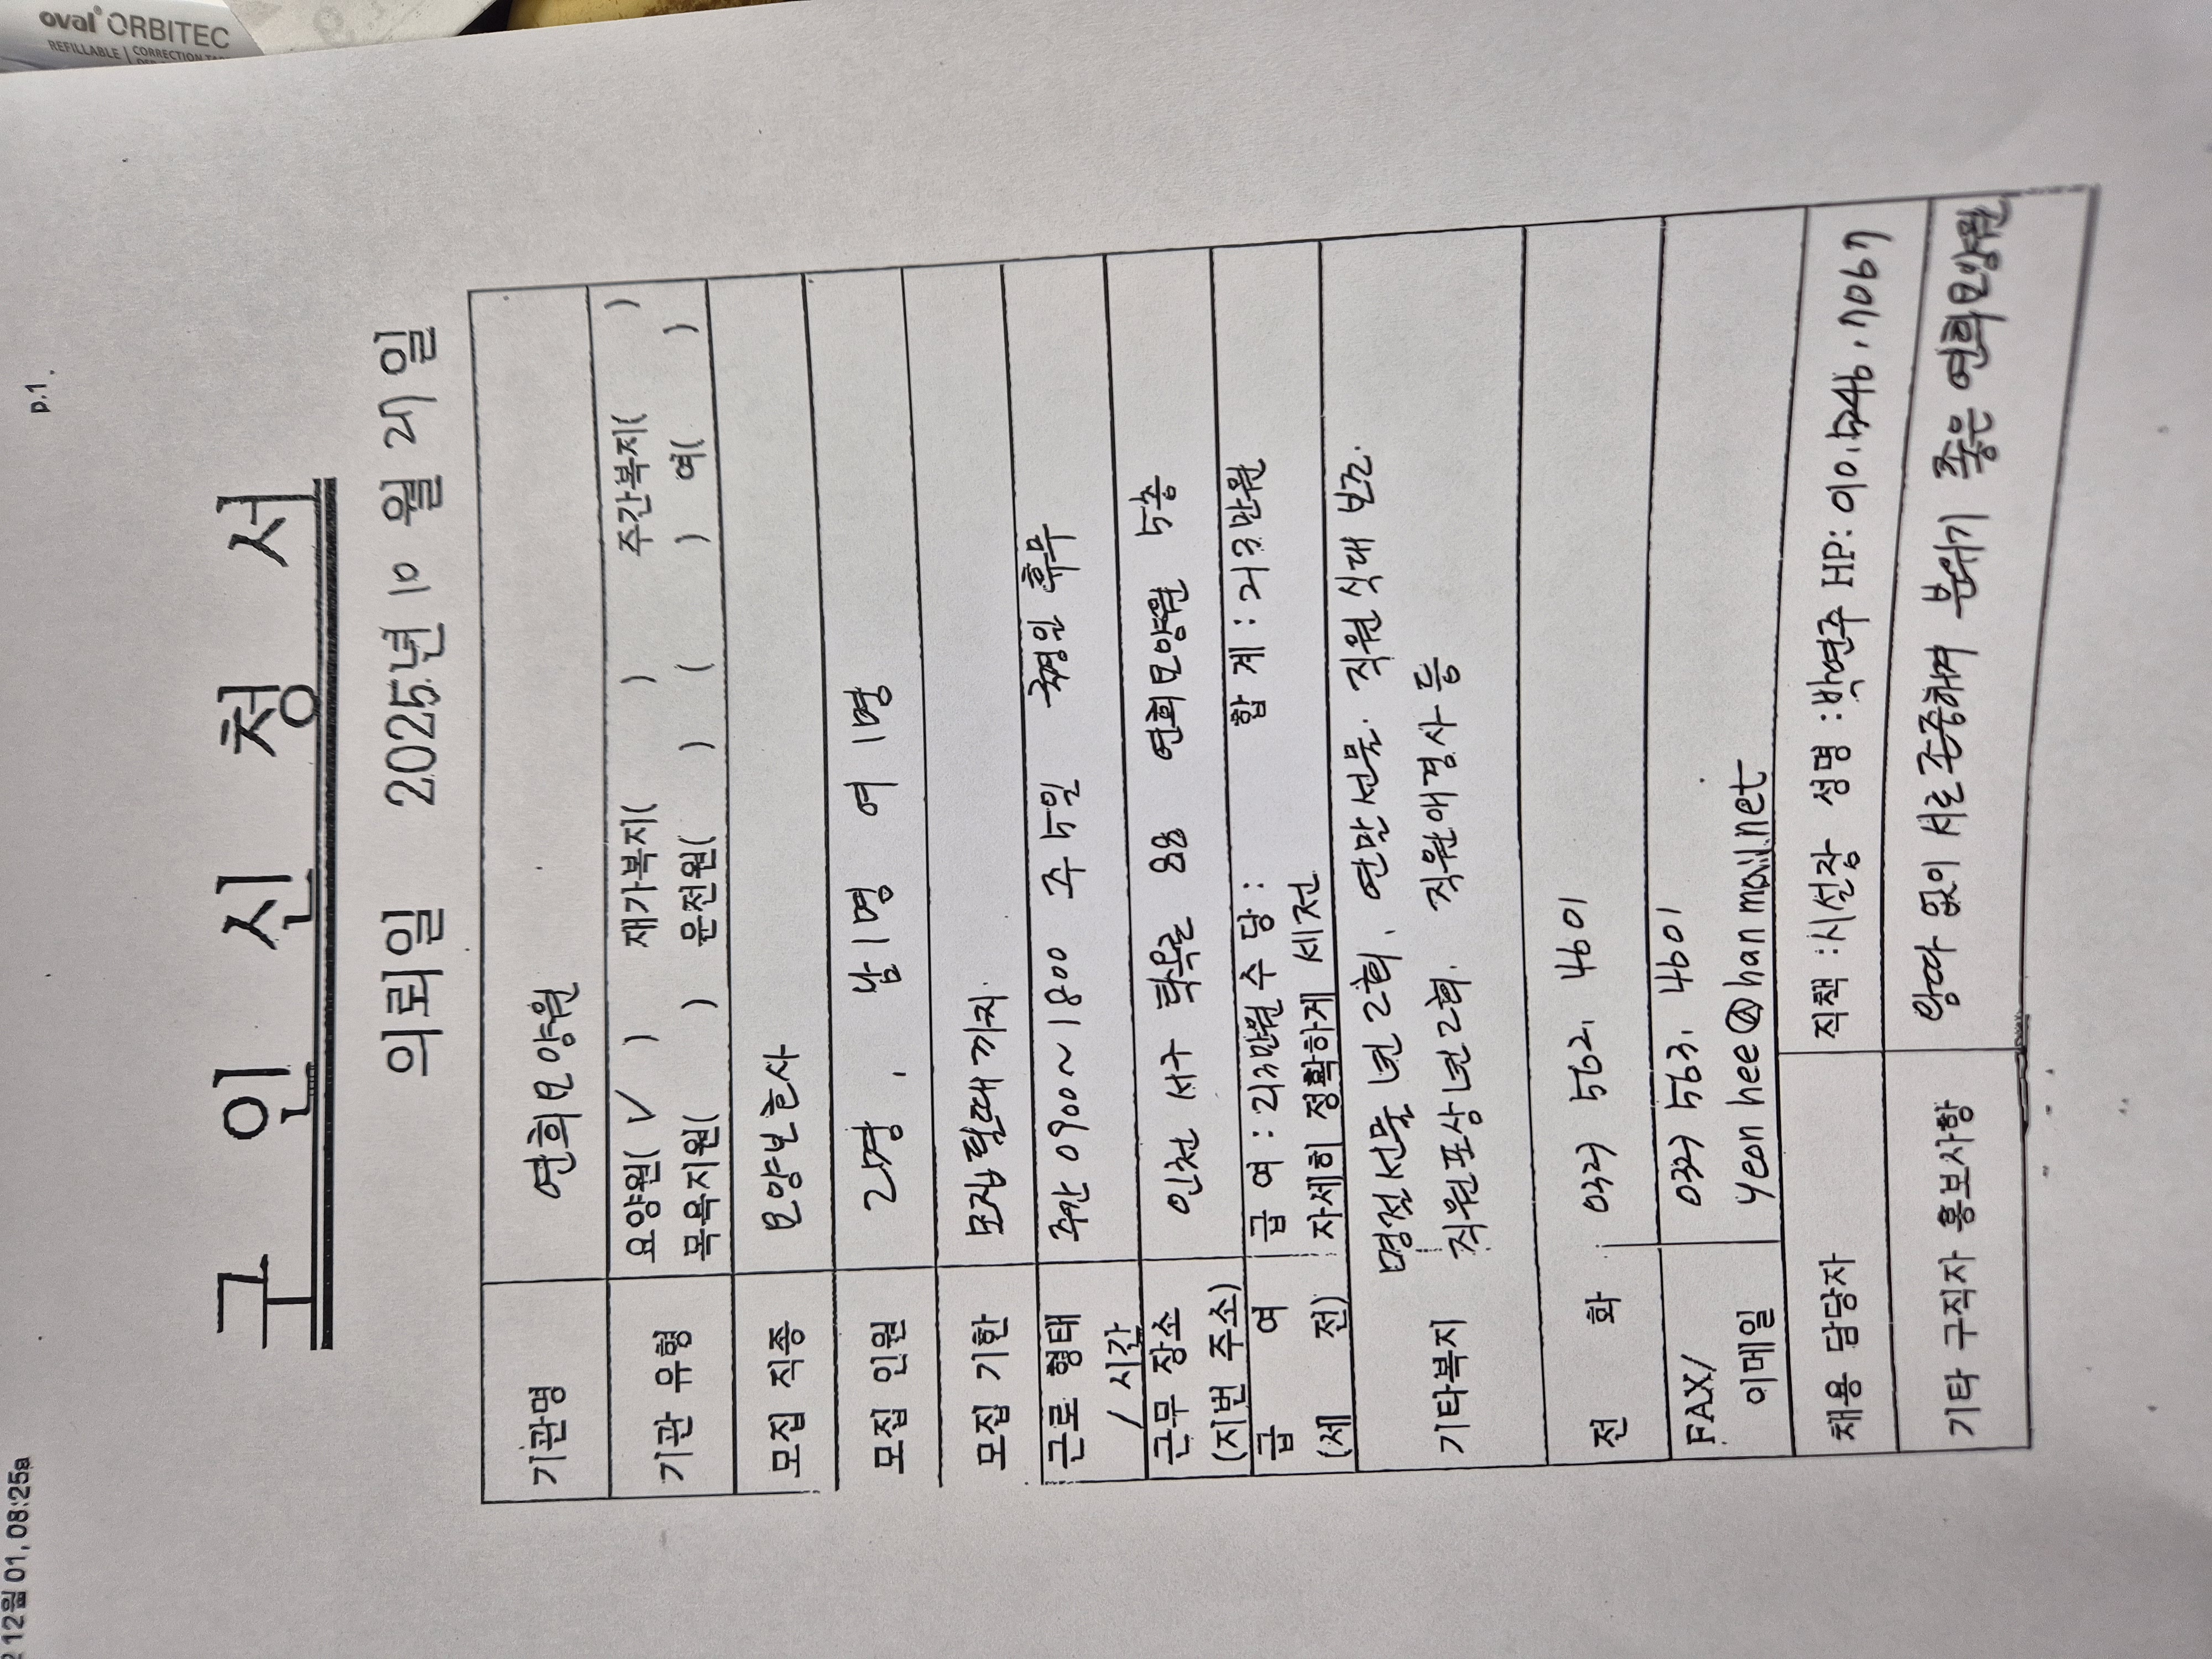 oval ORBITEC
REFILLABLE | CORRECTION
12월 01, 08:25a
p.1
구 인 신 청 서
의뢰일 2025년 10월 27일
기관명 연희요양원
기관 유형 요양원( √ ) 재가복지( ) 주간복지( )
목욕지원( ) 운전원( ) ( ) 여( )
모집 직종 요양보호사
모집 인원 2명, 남 1명 여 1명
모집 기한 모집될때까지.
근로 형태 / 시간 주간 0900~1800 주 5일 휴무
근무 장소 (지번 주소) 인천 서구 탁옥로 88 연희요양원 5층
급 여 (세 전) 급 여 : 213만원 수 당 : 합 계 : 213만원
자세히 정확하게 세전
기타복지 명절선물 년 2회. 연말선물. 직원식대 보조.
직원포상 년 2회. 직원애경사 등
전 화 032) 562. 4601
FAX/ 032) 563. 4601
이메일 yeonhee@hanmail.net
채용 담당자 직책 : 시설장 성명 : 박연주 HP: 010.5246.7067
기타 구직자 홍보사항 왕따 없이 서로존중하며 분위기 좋은 연희요양원